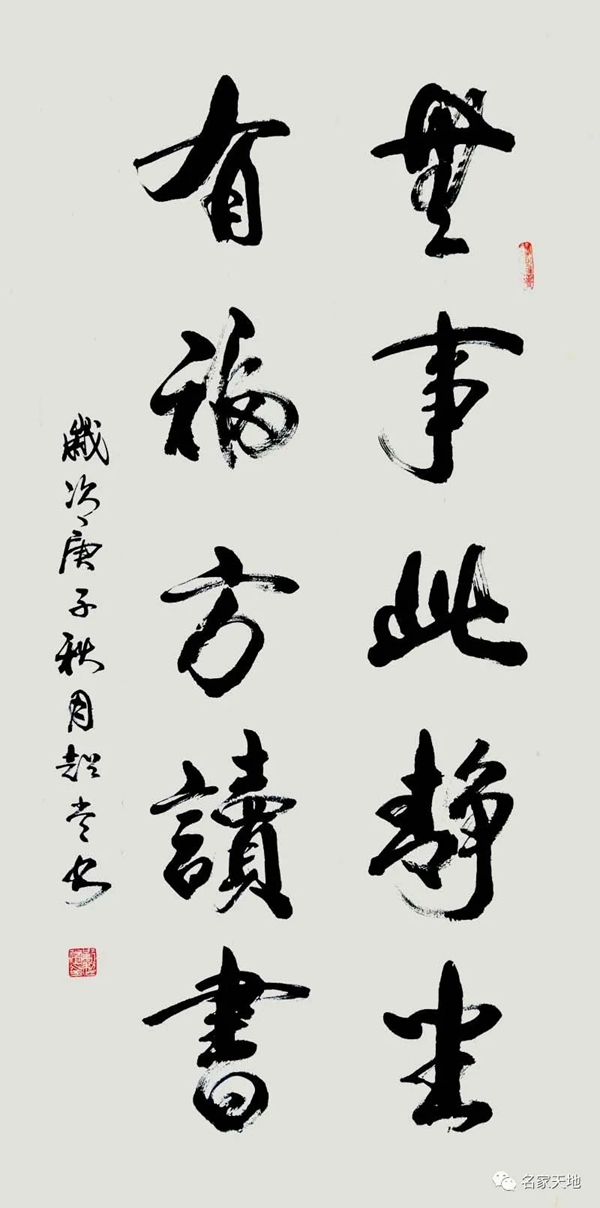 無事此靜坐
有福方讀書
歲次庚子秋月超常书
名家天地